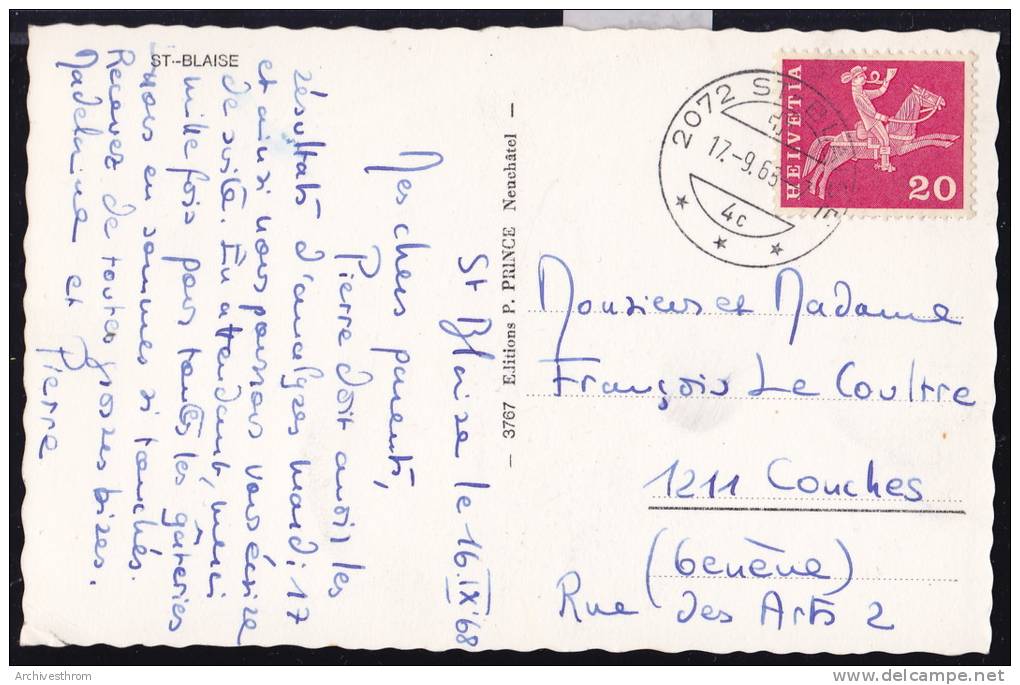 ST.-BLAISE
St Blaise le 16.IX'68
Mes chers parents,
Pierre doit avoir les
résultats d'analyses mardi 17
et ainsi nous pourrons vous écrire
de suite. En attendant, merci
mille fois pour toutes les gâteries
nous en sommes si touchés.
Recevez de toutes grosses bises.
Madelaine et
Pierre
— 3767 Editions P. PRINCE Neuchâtel —
2072 ST-BLAISE
17.-9.68
4c
HELVETIA
20
Monsieur et Madame
François Le Coultre
1211 Conches
(Genève)
Rue des Arts 2
Archivesthrom
http://www.delcampe.net